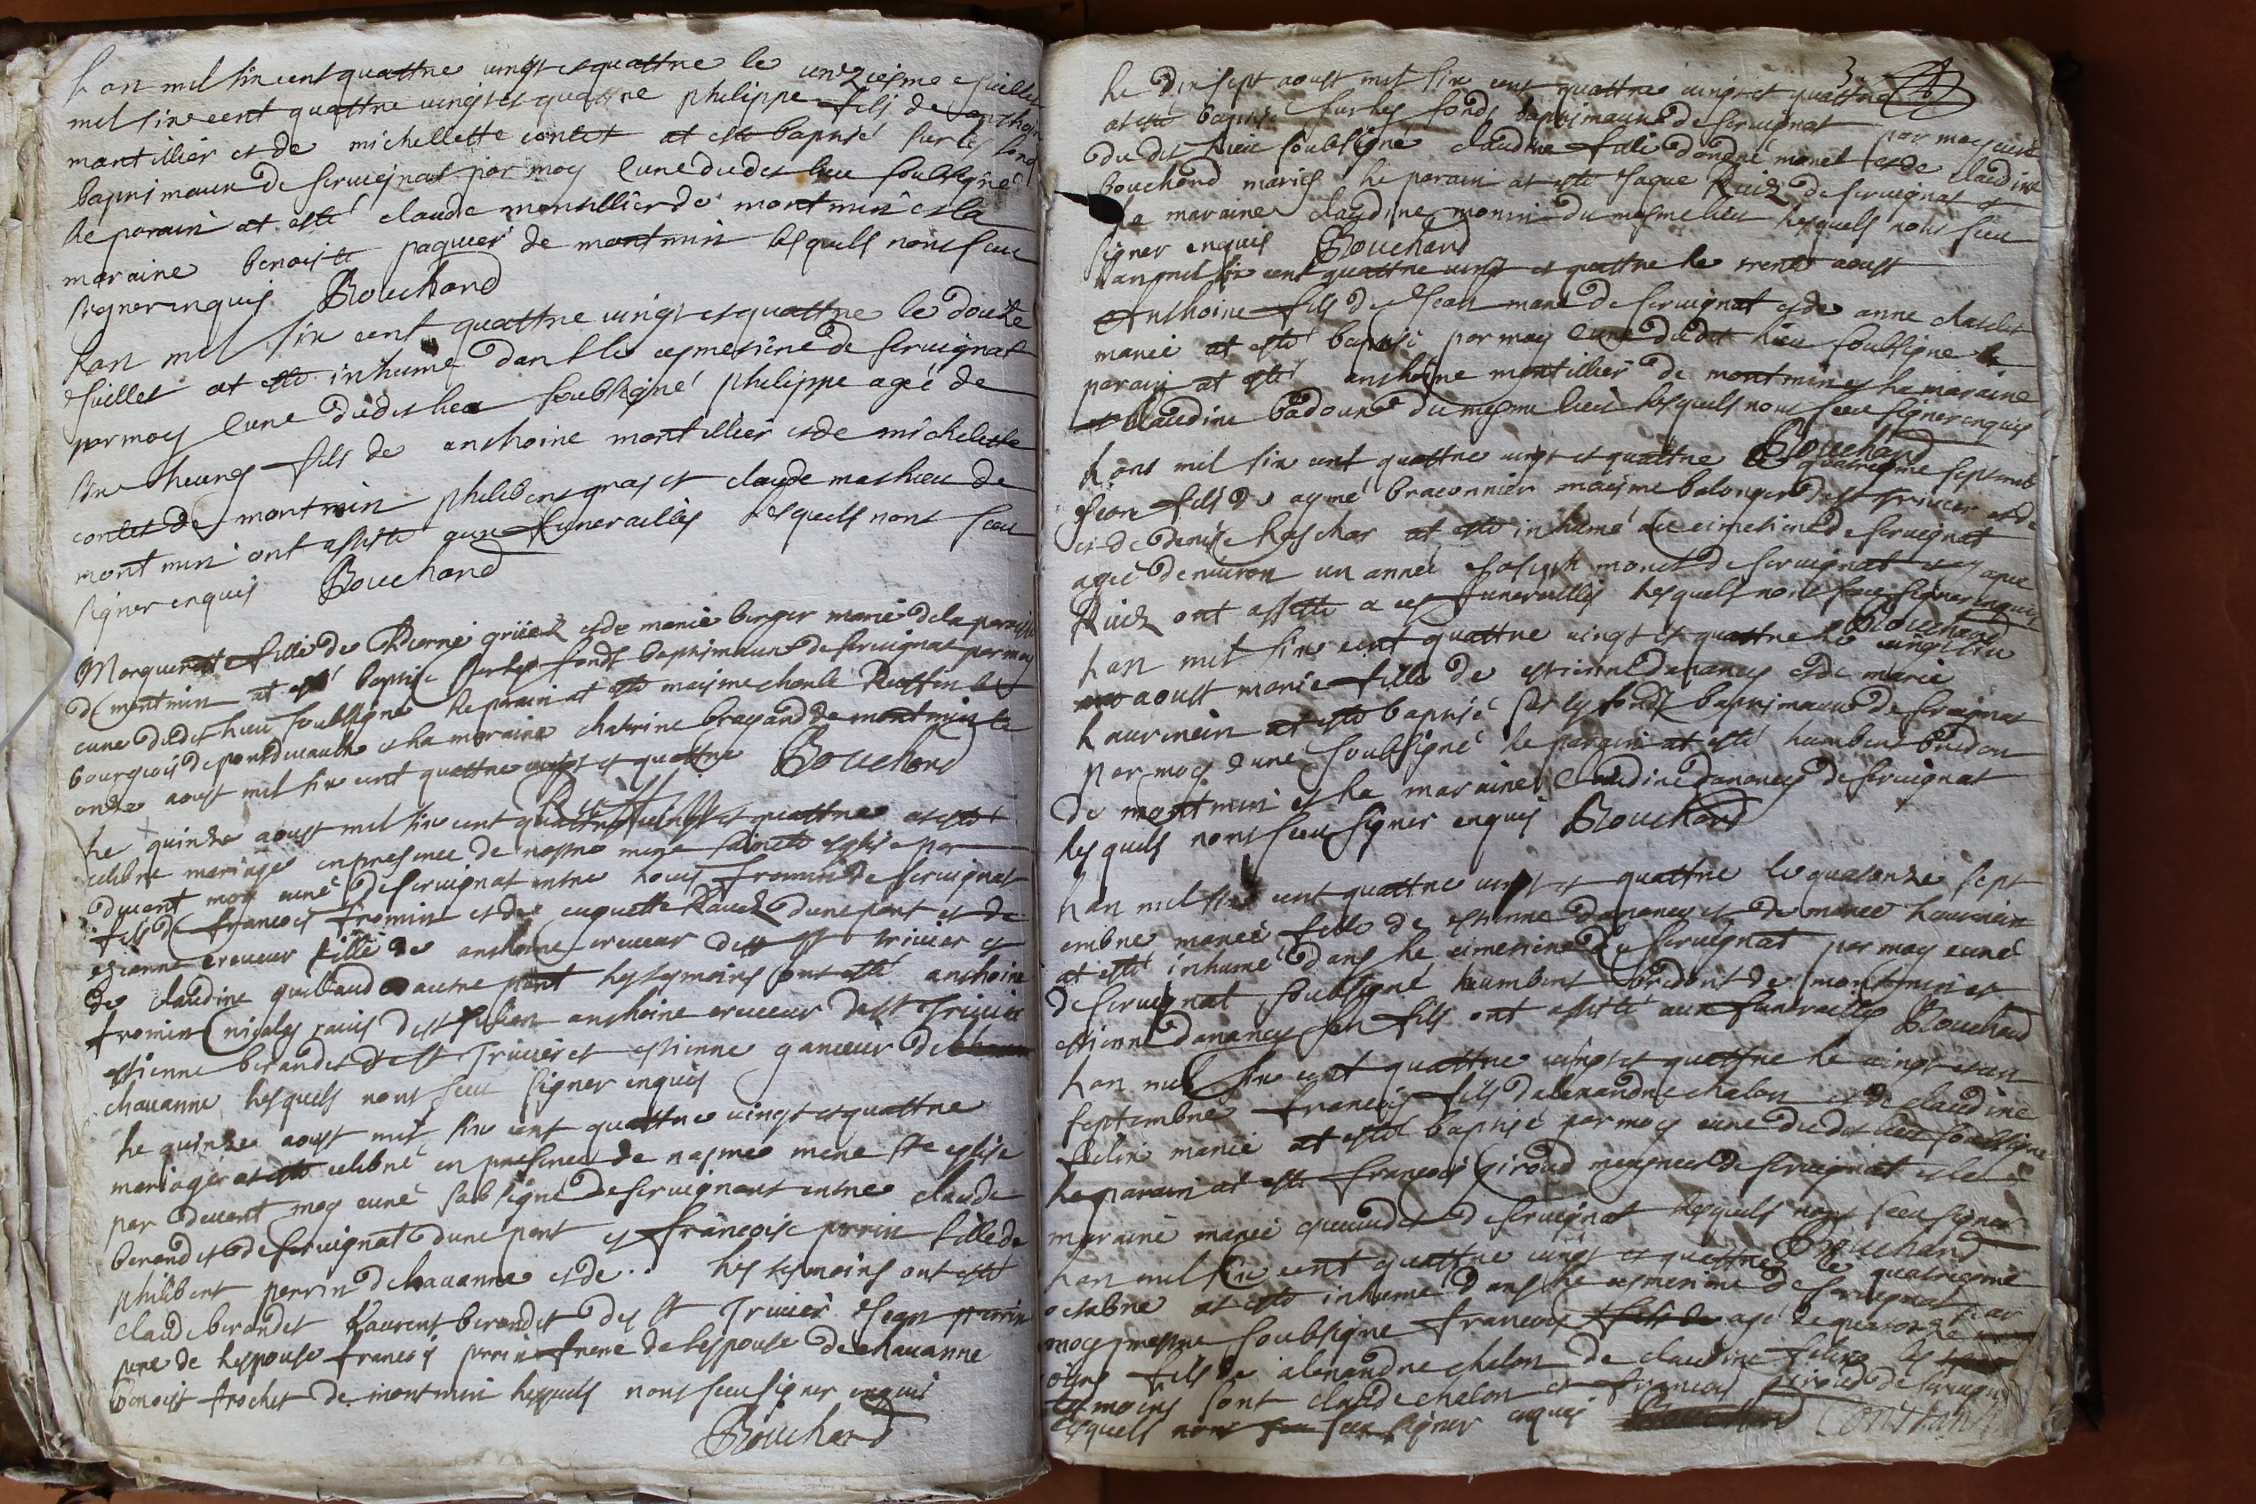 Lan mil six cent quattre vingt et quattre le unziesme Juillet
mil six cent quattre vingt et quattre philippe fils de anthoine
montillier et de michellette contet at este baptisé sur les fonds
baptismaux de servignat par moy curé dudit lieu soubsigné
le parain at esté claude montillier de montmin et la
maraine benoiste paquier de montmin lesquels nont sceu
signer enquis Bouchard
Lan mil six cent quattre vingt et quattre le douze
Juillet at esté inhumé dans le cymetiere de servignat
par moy curé dudit lieu soubsigné philippe agé de
six heures fils de anthoine montillier et de michelette
contet de montmin philibert gras et claude mathieu de
montmin ont assisté aux funerailles lesquels nont sceu
signer enquis Bouchard
Marguerite fille de Pierre et de marie berger marié de la paroisse
de montmin at esté baptisé sur les fonds baptismaux de servignat par moy
curé dudit lieu soubsigné le parain at esté maisme charle Ruffin
bourgeois de pontdevaulx et la maraine chatrine brayard de montmin le
onze aoust mil six cent quattre vingt et quattre Bouchard
Ruffin
Le quinze aoust mil six cent quattre vingt et quattre at esté
celebré mariage en presence de nostre mere saincte eglise par
devant moy curé de servignat entre Louis fromin de servignat
fils de francois fromin et de dune part et de
estienne creveur fille de anthoine creveur de st trivier et
de claudine guibaud dautre part les tesmoins ont esté anthoine
fromin nicolas de st Julien anthoine creveur de st Trivier
estienne berandet de st Trivier et estienne ganeur de
chavanne lesquels nont sceu signer enquis
Le quinze aoust mil six cent quattre vingt et quattre
mariage at esté celebré en presence de nostre mere ste eglise
par devant moy curé sousigné de servignat entre claude
berandet de servignat dune part et francoise perrin fille de
philibert perrin de chavanne et de .. les tesmoins ont esté
claude berandet Laurent berandet de st Trivier Jean perrin
pere de lespouse francois perrin frere de lespouse de chavanne
benoist trochet de montmin lesquels nont sceu signer enquis
Bouchard
3
Le dixsept aoust mil six cent quattre vingt et quattre
at esté baptisé sur les fonds baptismaux de servignat par moy curé
dudit lieu soubsigné claudine fille dandré monet et de claudine
bouchard mariés le parain at esté Jaque Ruiz de servignat et
la maraine claudine monin du mesme lieu lesquels nont sceu
signer enquis Bouchard
Lan mil six cent quattre vingt et quattre le trente aoust
Anthoine fils de Jean mare de servignat et de anne chatelet
marié at esté baptisé par moy curé dudit lieu soubsigné le
parain at esté anthoine montillier de montmin et la maraine
claudine badoux du mesme lieu lesquels nont sceu signer enquis
Bouchard
Lan mil six cent quattre vingt et quattre le quatriesme septemb
Jean fils de aymé braconnier maisme bolonger de st trivier et de
et de denise at esté inhumé au cimetiere de servignat
agé denviron un année Joseph monet de servignat et Jaque
Ruiz ont assisté a ces funerailles lesquels nont sceu signer enquis
Bouchard
Lan mil six cent quattre vingt et quattre le vingt six
aoust marie fille de estienne danancy et de marie
Laurencin at esté baptisé sur les fonds baptismaux de servignat
par moy curé soubsigné le parain at esté humbert bredon
de montmin et la maraine claudine danancy de servignat
lesquels nont sceu signer enquis Bouchard
Lan mil six cent quattre vingt et quattre le quatorze sept
embre marie fille de estienne danancy et de marie Laurencin
at esté inhumé dans le cimetiere de servignat par moy curé
de servignat soubsigné humbert bredon de montmin et
estienne danancy son fils ont assisté aux funerailles Bouchard
Lan mil six cent quattre vingt et quattre le vingt et un
septembre francois fils dalexandre chalon et de claudine
felix marié at esté baptisé par moy curé dudit lieu soubsigné
le parain at esté francois giroud meusnier de servignat et la
maraine marie de servignat lesquels nont sceu signer
Bouchard
Lan mil six cent quattre vingt et quattre le quatriesme
octobre at esté inhumé dans le cymetiere de servignat par
moy prestre soubsigné francois agé de quatorze
jours fils de alexandre chalon de claudine felix les
tesmoins sont claude chalon et francois giroud de servignat
lesquels nont sceu signer enquis